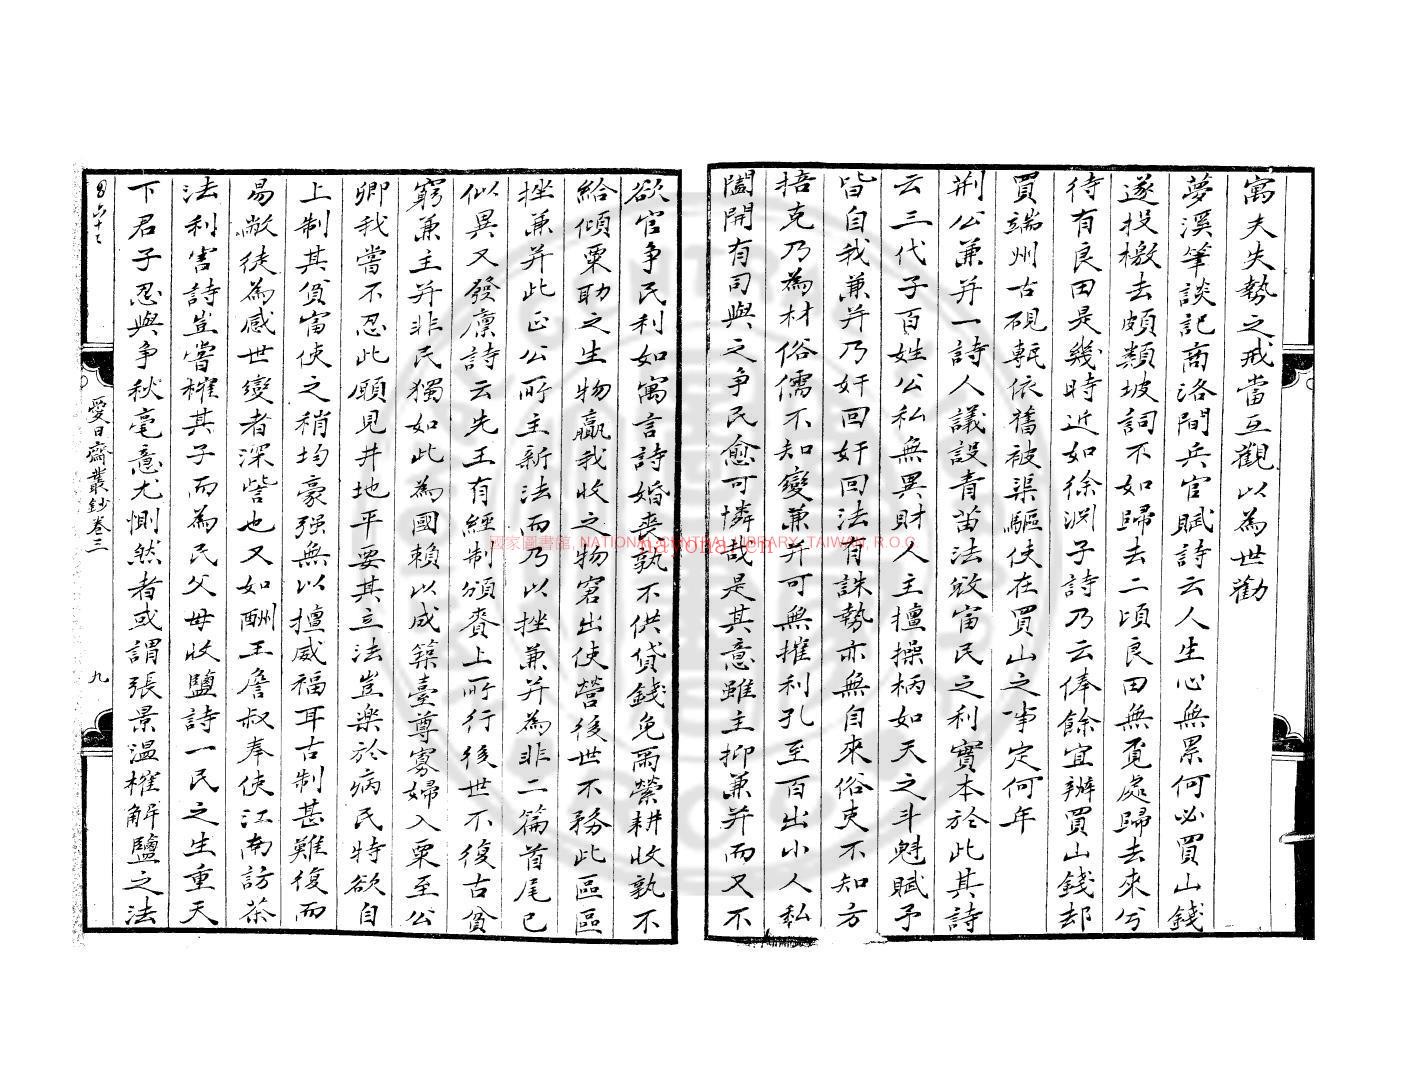 寓夫失勢之戒當互觀以為世勸
夢溪筆談記商洛間兵官賦詩云人生心無累何必買山錢
遂投檄去頗類坡詞不如歸去二頃良田無覓處歸去來兮
待有良田是幾時近如徐淵子詩乃云俸餘宜辦買山錢却
買端州古硯甎依舊被渠驅使在買山之事定何年
荆公兼并一詩人議設青苗法斂富民之利實本於此其詩
云三代子百姓公私無異財人主擅操柄如天之斗魁賦予
皆自我兼并乃奸回奸回法有誅勢亦無自來俗吏不知方
掊克乃為材俗儒不知變兼并可無摧利孔至百出小人私
闔開有司與之爭民愈可憐哉是其意雖主抑兼并而又不
欲官爭民利如寓言詩婚喪孰不供貸錢免爾縈耕收孰不
給傾粟助之生物贏我收之物窘出使營後世不務此區區
挫兼并此正公所主新法而乃以挫兼并為非二篇首尾已
似異又發廩詩云先王有經制頒賚上所行後世不復古貧
窮兼主并非民獨如此為國賴以成築臺尊寡婦入粟至公
卿我嘗不忍此願見井地平要其立法豈樂於病民特欲自
上制其貧富使之稍均豪强無以擅威福耳古制甚難復而
易敝徒為感世變者深訾也又如酬王詹叔奉使江南訪茶
法利害詩豈嘗榷其子而為民父毋收鹽詩一民之生重天
下君子忍與爭秋毫意尤惻然者或謂張景温榷解鹽之法
愛日齋叢鈔卷三
九
國家圖書館, NATIONAL CENTRAL LIBRARY, TAIWAN, R.O.C
navona.cn